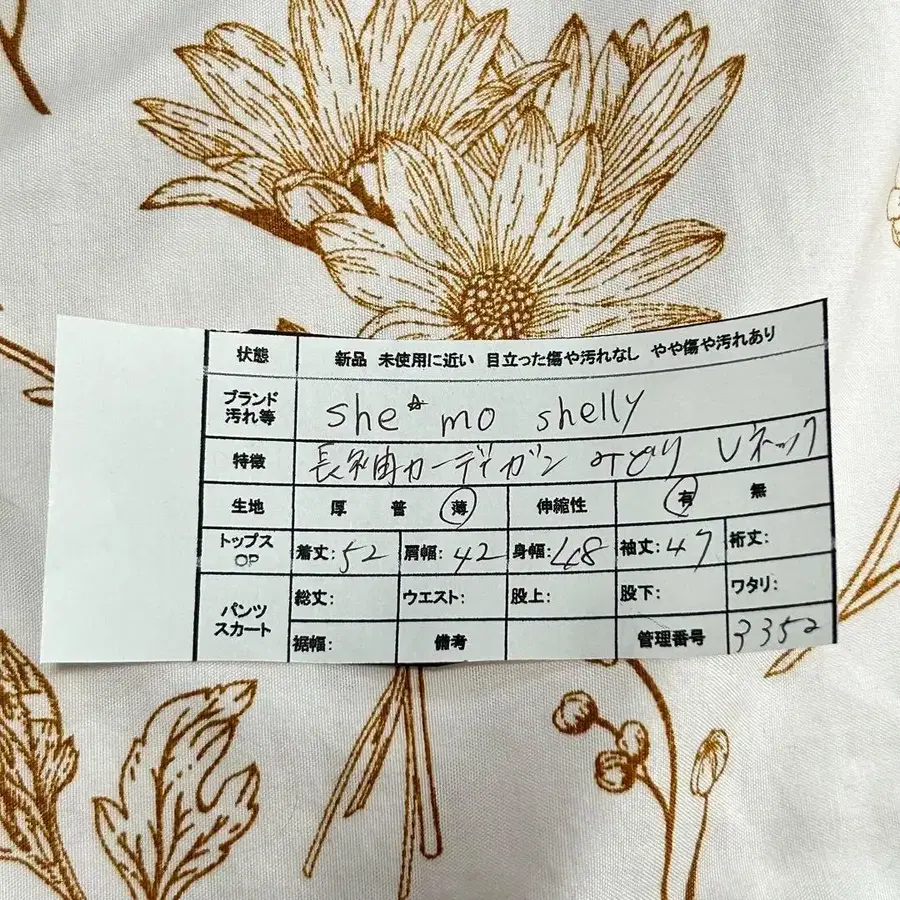 状態 新品 未使用に近い 目立った傷や汚れなし やや傷や汚れあり
ブランド 汚れ等 she☆mo shelly
特徴 長袖カーディガン みどり Vネック
生地 厚 普 薄 伸縮性 有 無
トップス OP 着丈:52 肩幅:42 身幅:48 袖丈:47 裄丈:
パンツ スカート 総丈: ウエスト: 股上: 股下: ワタリ:
裾幅: 備考 管理番号 3352